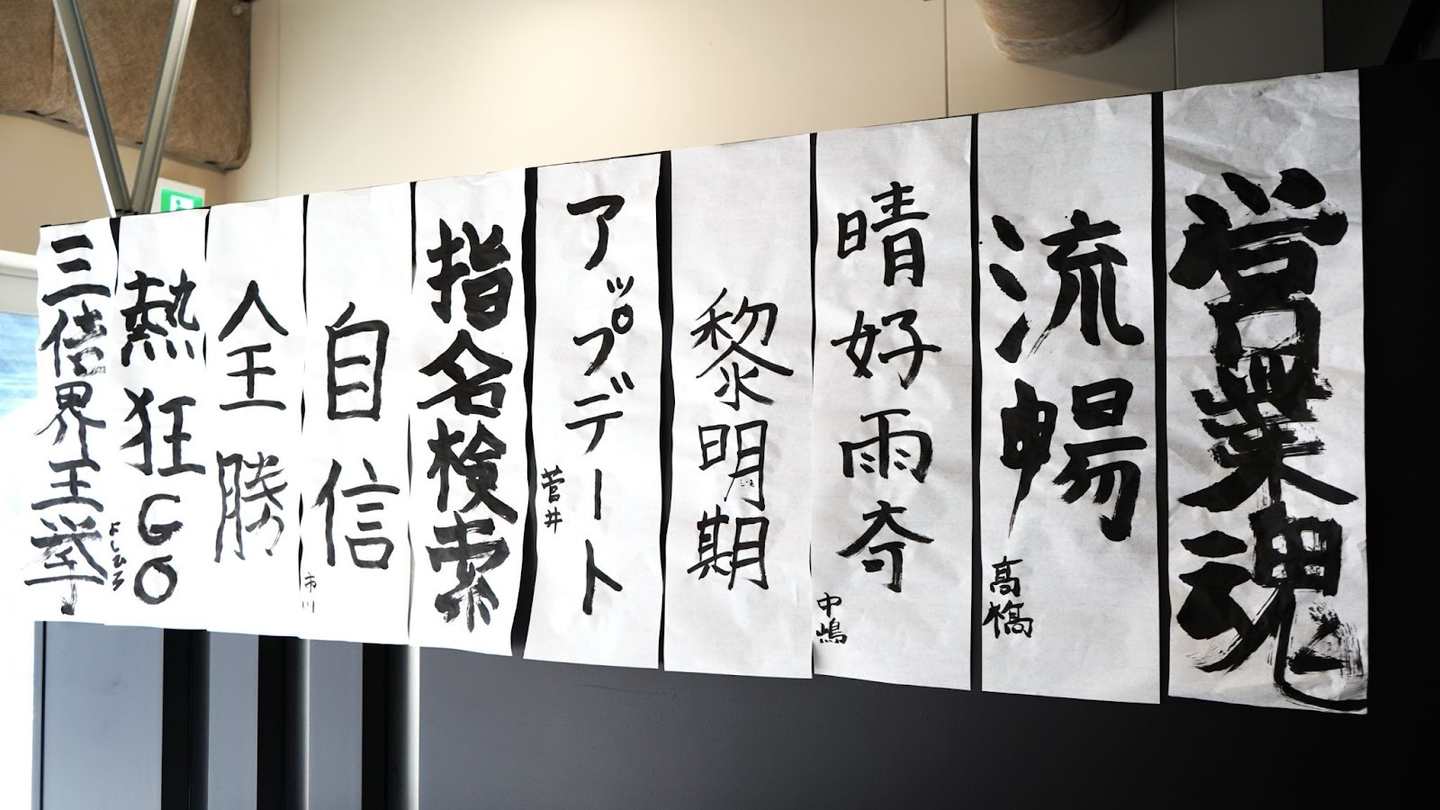 営業魂
流暢
高橋
晴好雨奇
中嶋
黎明期
アップデート
菅井
指名検索
自信
市川
全勝
熱狂GO
三信界王拳
よしひろ